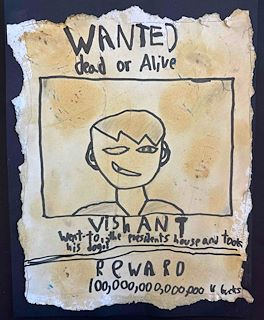 WANTED
dead or Alive
VISHANT
Went to the presidents house and took
his dog!
REWARD
100,000,000,000,000 V bucks